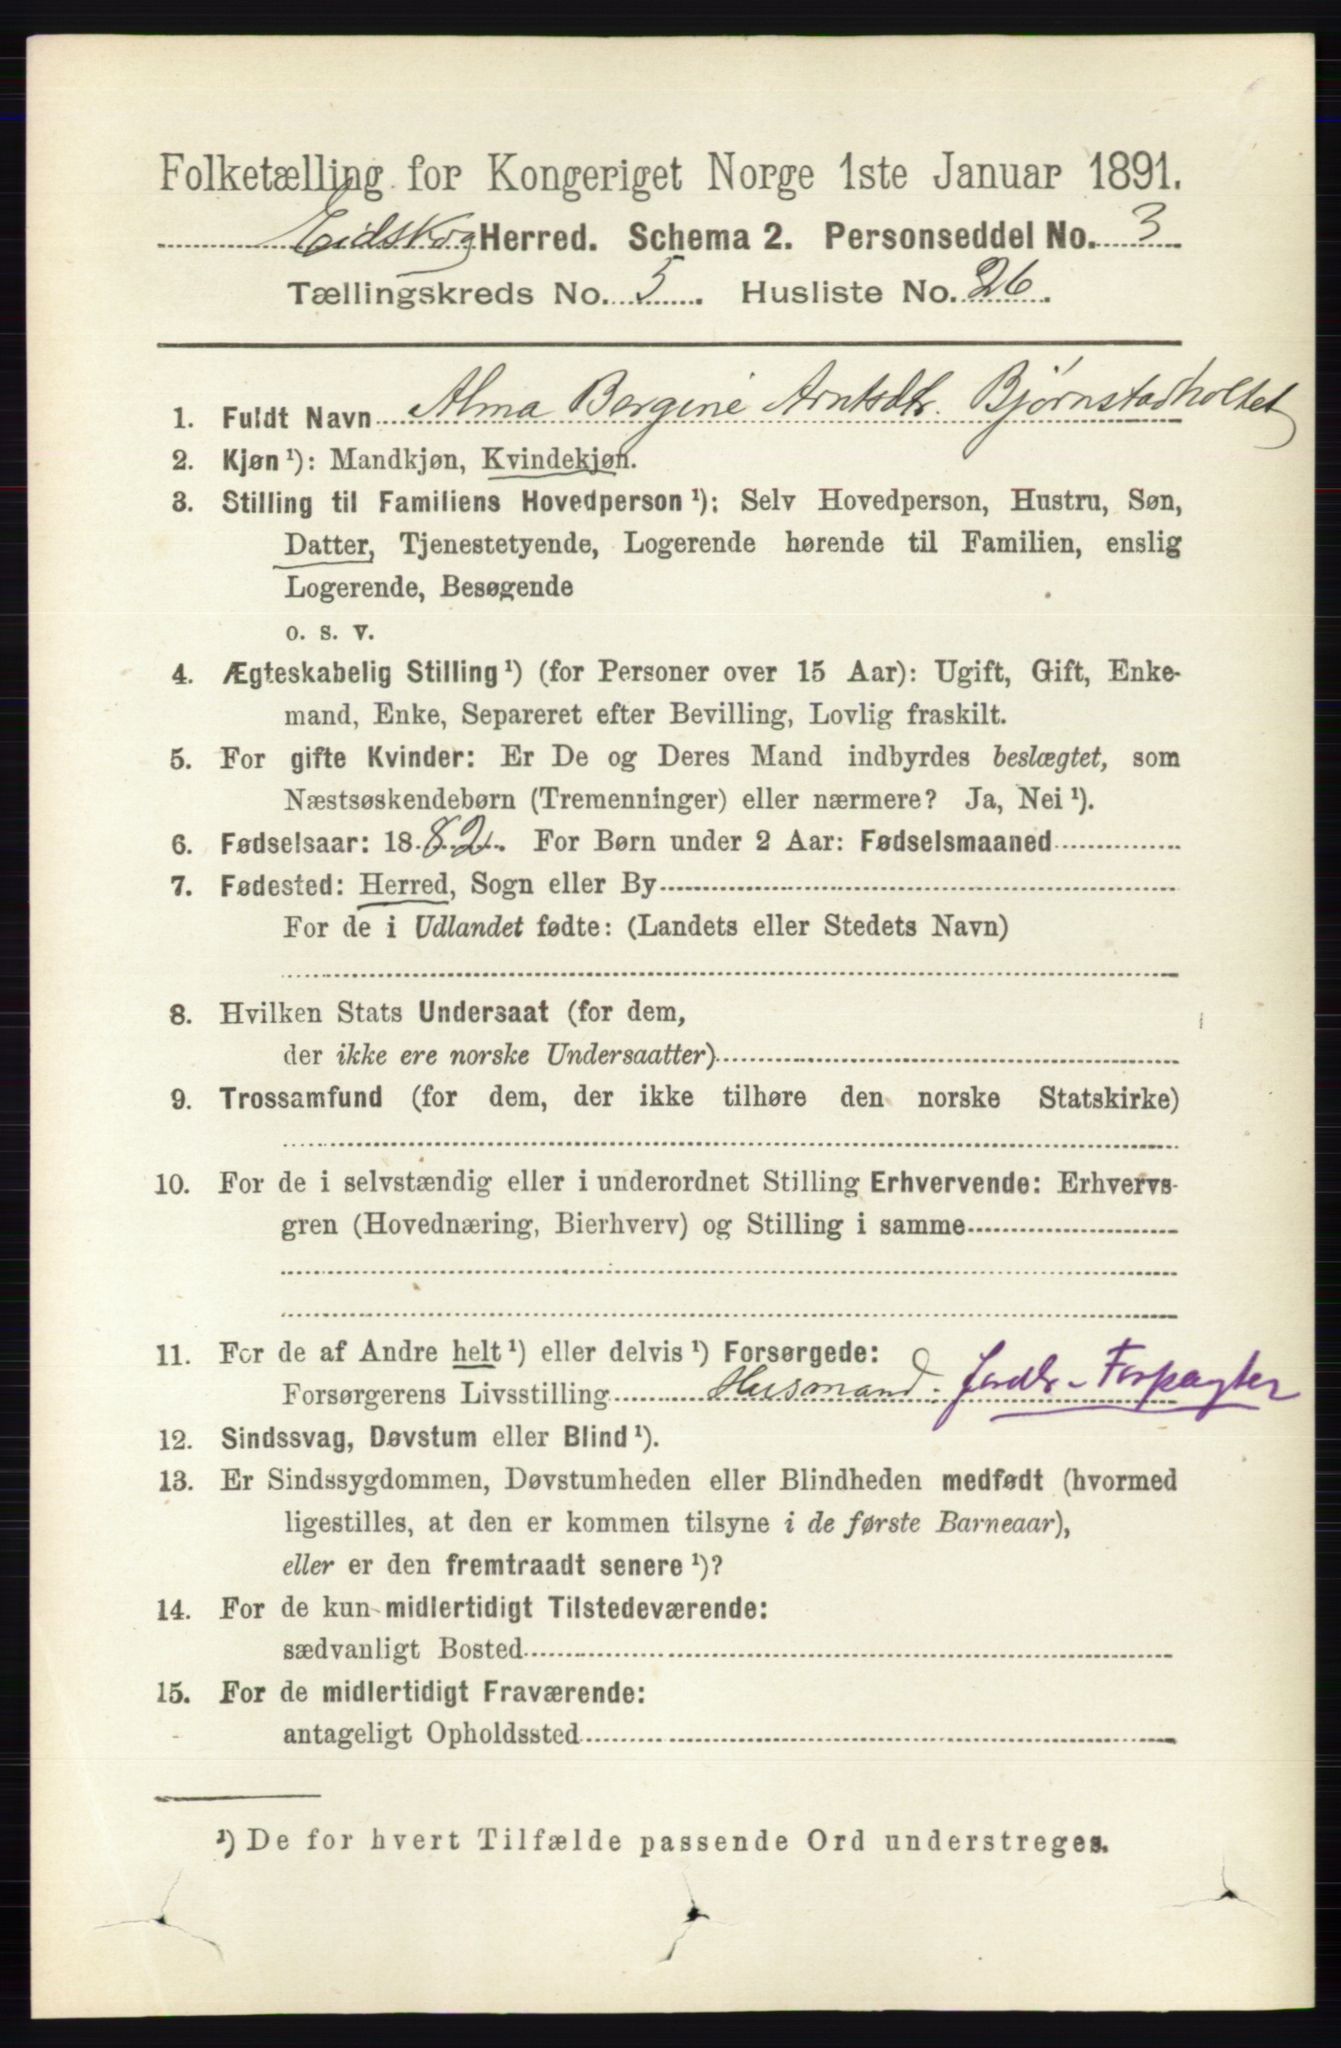 Folketælling for Kongeriget Norge 1ste Januar 1891.
Eidskog Herred. Schema 2. Personseddel No. 3
Tællingskreds No. 5. Husliste No. 26.
1. Fuldt Navn Alma Bergine Arntsdtr. Bjørnstadholtet
2. Kjøn¹): Mandkjøn, Kvindekjøn.
3. Stilling til Familiens Hovedperson¹): Selv Hovedperson, Hustru, Søn,
Datter, Tjenestetyende, Logerende hørende til Familien, enslig
Logerende, Besøgende
o. s. v.
4. Ægteskabelig Stilling¹) (for Personer over 15 Aar): Ugift, Gift, Enke-
mand, Enke, Separeret efter Bevilling, Lovlig fraskilt.
5. For gifte Kvinder: Er De og Deres Mand indbyrdes beslægtet, som
Næstsøskendebørn (Tremenninger) eller nærmere? Ja, Nei¹).
6. Fødselsaar: 1882. For Børn under 2 Aar: Fødselsmaaned
7. Fødested: Herred, Sogn eller By
For de i Udlandet fødte: (Landets eller Stedets Navn)
8. Hvilken Stats Undersaat (for dem,
der ikke ere norske Undersaatter)
9. Trossamfund (for dem, der ikke tilhøre den norske Statskirke)
10. For de i selvstændig eller i underordnet Stilling Erhvervende: Erhvervs-
gren (Hovednæring, Bierhverv) og Stilling i samme
11. For de af Andre helt¹) eller delvis¹) Forsørgede:
Forsørgerens Livsstilling Husmand. Jordbr-Forpagter
12. Sindssvag, Døvstum eller Blind¹).
13. Er Sindssygdommen, Døvstumheden eller Blindheden medfødt (hvormed
ligestilles, at den er kommen tilsyne i de første Barneaar),
eller er den fremtraadt senere¹)?
14. For de kun midlertidigt Tilstedeværende:
sædvanligt Bosted
15. For de midlertidigt Fraværende:
antageligt Opholdssted
¹) De for hvert Tilfælde passende Ord understreges.